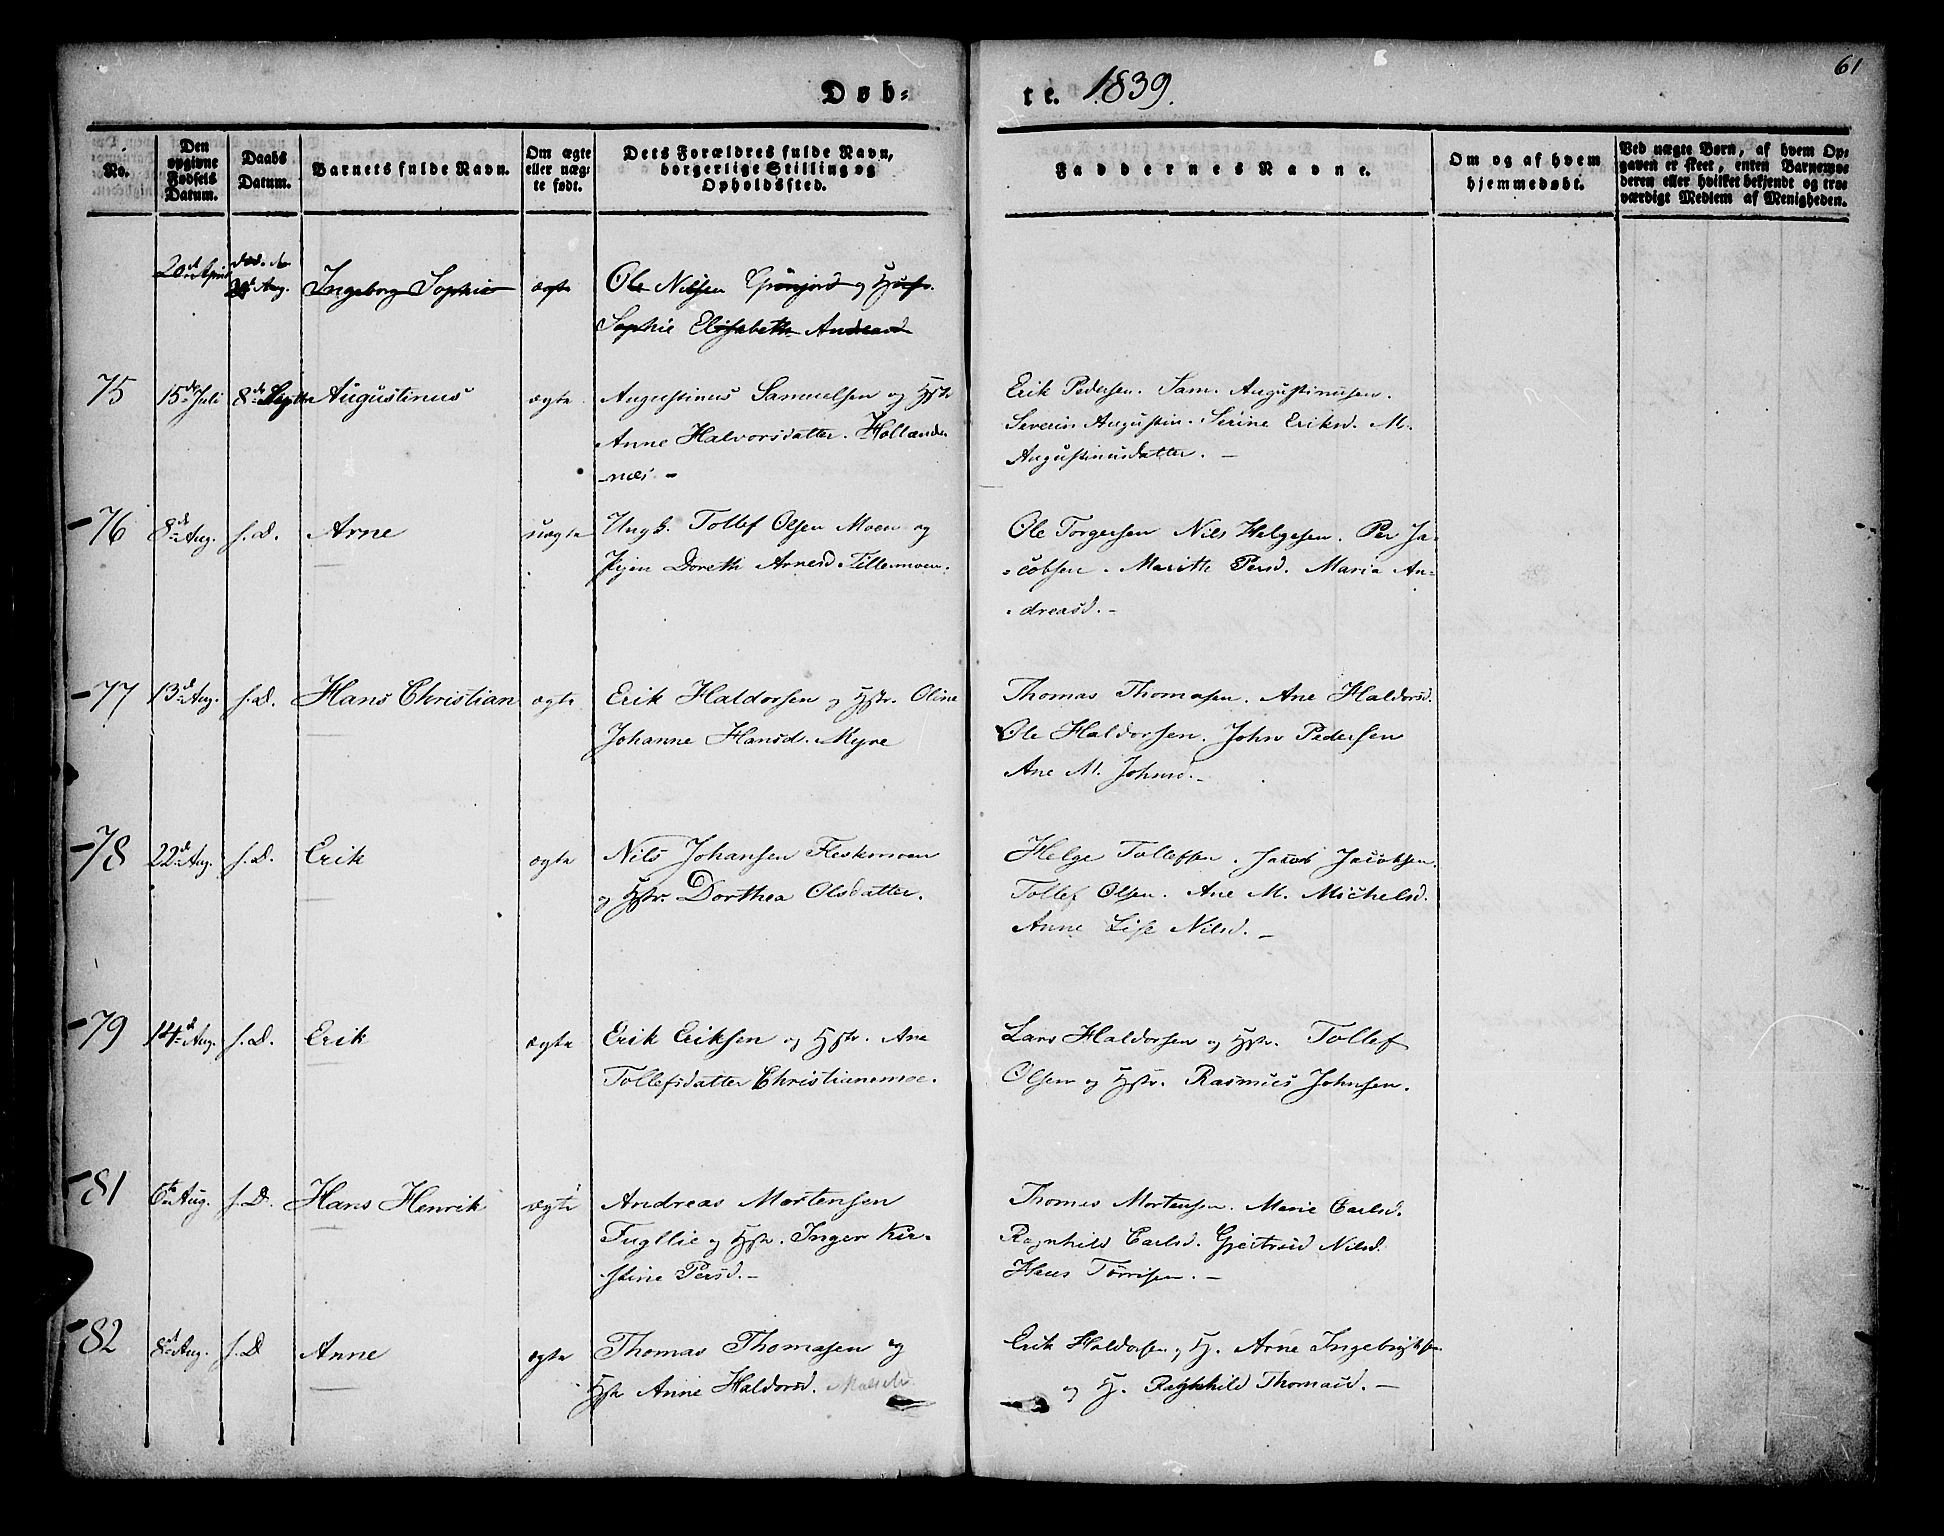 Døb-
te. 1839.
61
No.
Den opgivne Fødsels Datum.
Daabs Datum.
Barnets fulde Navn.
Om ægte eller uægte født.
Dets Forældres fulde Navn, borgerlige Stilling og Opholdssted.
Faddernes Navne.
Om og af hvem hjemmedøbt.
Ved uægte Børn, af hvem Opgaven er skeet, enten Barnemoderen eller hvilket bekjendt og troværdigt Medlem af Menigheden.
20d April Aug. Ingeborg Sophie ægte Ole Nilsen Grønjord og
Sophie Elisabeth Andreasd
75 15de Juli 8de Septbr Augustinus ægte Augustinus Samuelsen og Hstr
Anne Halvorsdatter. Hollænde-
-næs. -
Erik Pedersen. Sam. Augustinusen.
Severin Augustin. Serine Eriksd. M.
Augustinusdatter. -
-76 8de Aug. s.D. Arne uægte Ungk. Tollef Olsen Moen og
Pigen Doreth Arnesd. Lillemoen.
Ole Torgersen Nils Helgesen. Per Ja-
-cobsen. Marith Persd. Maria An-
-dreasd. -
-77 13d Aug. s.D. Hans Christian ægte Erik Haldorsen og Hstr. Oline
Johanne Hansd. Myre
Thomas Thomasen. Ane Haldorsd.
Ole Haldorsen. John Pedersen
Ane M. Johnsd. -
-78 22d Aug. s.D. Erik ægte Nils Johansen Keskmoen
og Hstr. Dorthea Olsdatter.
Helge Tollefsen. Jacob Jacobsen.
Tollef Olsen. Ane M. Michelsd.
Anne Lise Nilsd. -
-79 14d Aug. s.D. Erik ægte Erik Eriksen og Hstr. Ane
Tollefsdatter Christianemoe.
Lars Haldorsen og Hstr. Tollef
Olsen og Hstr. Rasmus Johnsen.
-81 6te Aug. s.D. Hans Henrik ægte Andreas Mortensen
Fugllie og Hstr. Inger Kir-
stine Persd. -
Thomas Mortensen. Marie Carlsd.
Ragnhild Carlsd. Gjertrud Nilsd.
Hans Tørrisen. -
-82 8de Aug. s.D Anne ægte Thomas Thomasen og
Hstr Anne Haldorsd.
Erik Haldorsen og H. Arne Ingebrigtsen
og H. Ragnhild Thomasd. -